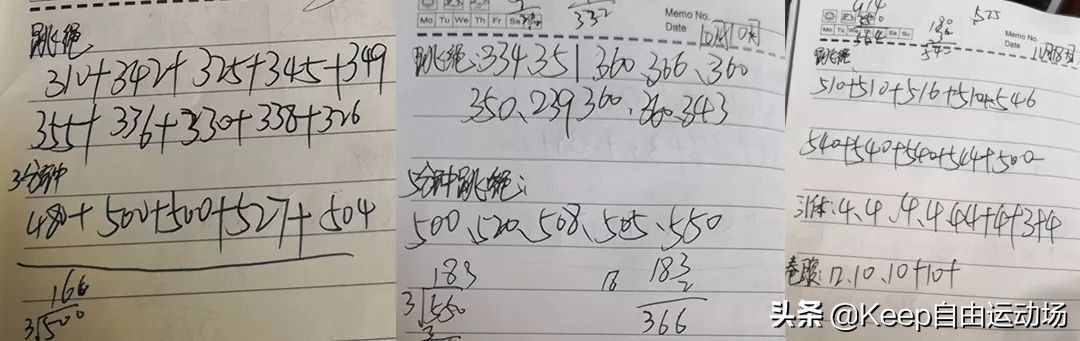 跳绳
310+342+325+345+349
355+336+330+338+326
3分钟
480+500+500+527+504
166
3 500
332
Mo Tu We Th Fr Sa
Memo No.
Date
跳绳:334、351、360、366、360
350、239、360、360、343
5分钟跳绳:
500、520、508、505、550
183
3 550
18
183
2
366
914
525
180
540
Mo Tu
Memo No.
Date
跳绳
510+510+516+510+546
540+540+540+544+500
引体:4、4、4、4、4+4+4+3+4
卷腹:12、10、10+10+
头条 @Keep自由运动场